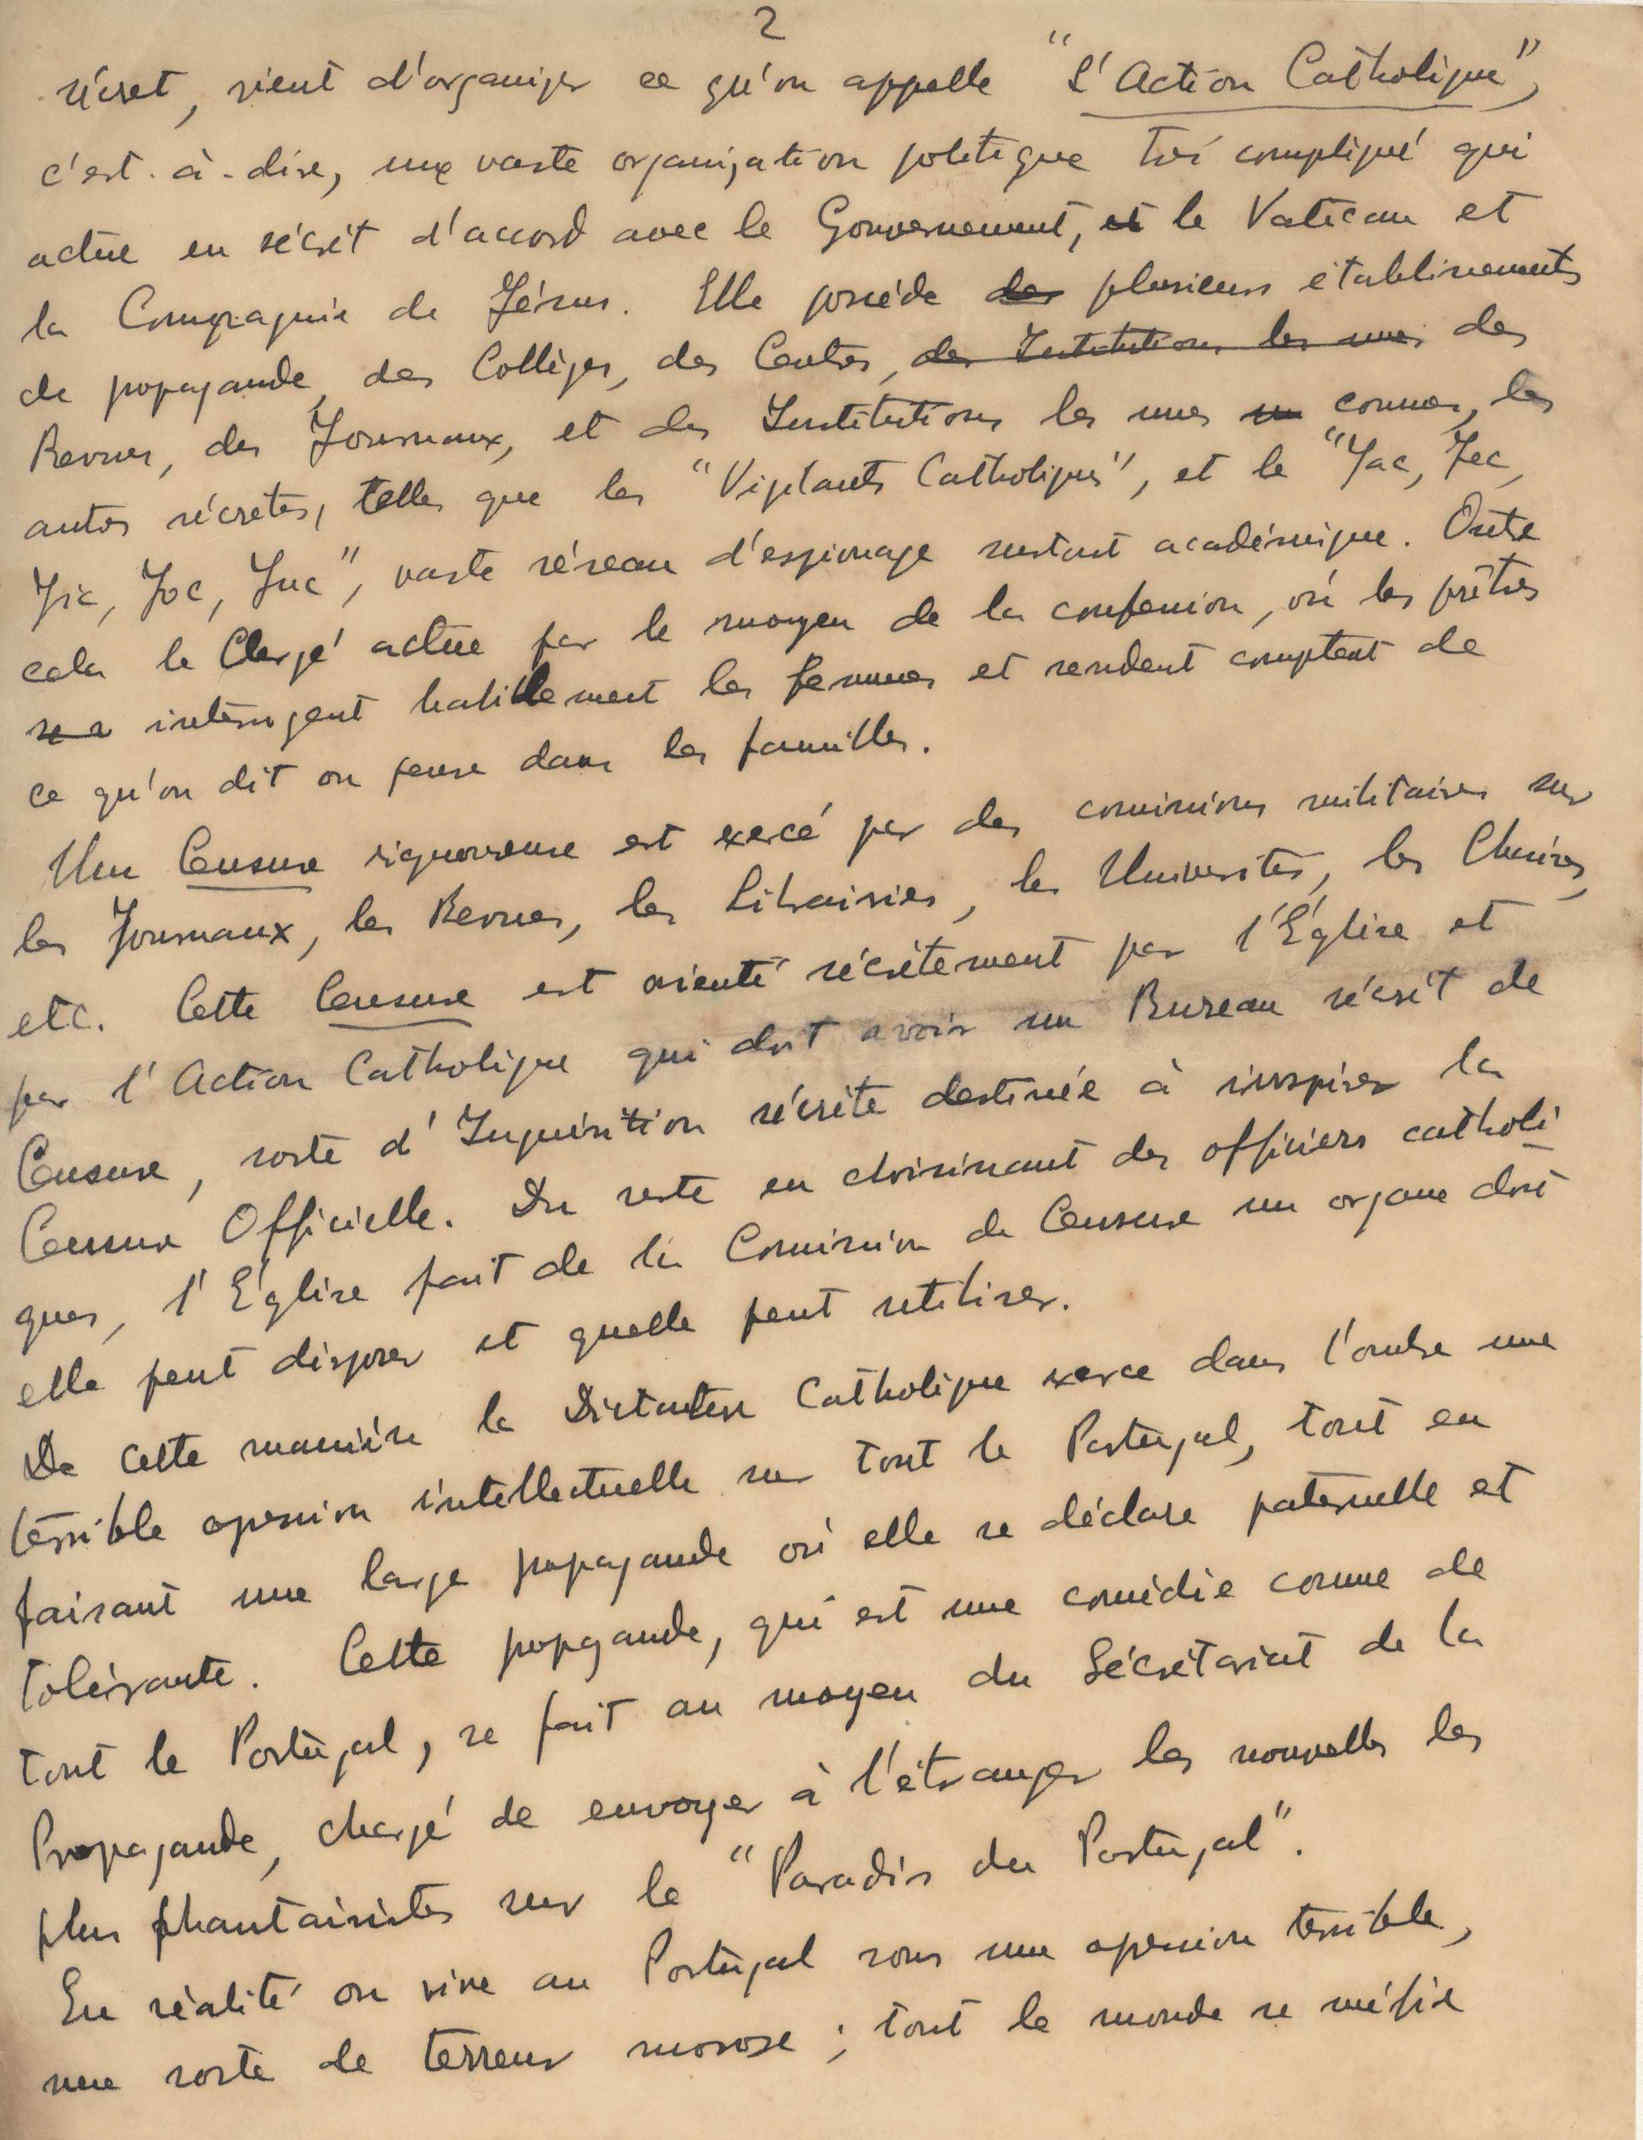 2
sécret, vient d'organiser ce qu'on appelle "L'Action Catholique",
c'est-à-dire, une vaste organisation politique très compliqué qui
actue en sécrèt d'accord avec le Gouvernement, et le Vatican et
la Compagnie de Jésus. Elle posséde des plusieurs établissements
de propagande, des Collèges, des Centres, des Institutions les unes des
Revues, des Journaux, et des Institutions les unes connues, les
autres sécretes, telles que les "Vigilants Catholiques", et le "Jac, Jec,
Jic, Joc, Juc", vaste réseau d'espionage surtout académique. Outre
cela le Clergé actue par le moyen de la confession, où les prêtres
interrogent habillement les femmes et rendent comptent de
ce qu'on dit ou pense dans les familles.
Une Censure rigoureuse est exercé par des comissions militaires sur
les Journaux, les Revues, les Librairies, les Universités, les Chaires,
etc. Cette Censure est orienté sécrètement par l'Église et
par l'Action Catholique qui doit avoir un Bureau sécrèt de
Censure, sorte d'Inquisition sécrète destinée à inspirer la
Censure Officielle. Du reste en choisissant des officiers catholi-
ques, l'Église fait de la Comission de Censure un organe dont
elle peut disposer et quelle peut utiliser.
De cette manière la Dictature Catholique exerce dans l'ombre une
terrible opression intellectuelle sur tout le Portugal, tout en
faisant une large propagande où elle se déclare paternelle et
tolérante. Cette propagande, qui est une comédie comme de
tout le Portugal, se fait au moyen du Sécrétariat de la
Propagande, chargé de envoyer à l'étranger les nouvelles les
plus phantaisistes sur le "Paradis du Portugal".
En réalité on vive au Portugal sous une opression terrible,
une sorte de terreur morose ; tout le monde se méfie